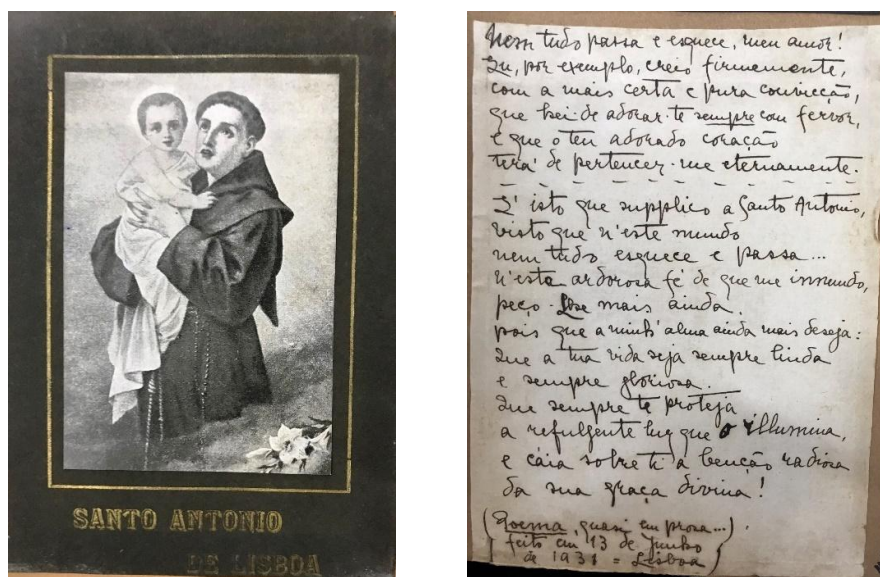 SANTO ANTONIO
DE LISBOA
Nem tudo passa e esquece, meu amor!
Eu, por exemplo, creio firmemente,
com a mais certa e pura convicção,
que hei-de adorar-te sempre com fervor,
e que o teu adorado coração
terá de pertencer-me eternamente.
E' isto que supplico a Santo Antonio,
visto que n'este mundo
nem tudo esquece e passa...
n'esta ardorosa fé de que me innundo,
peço-lhe mais ainda.
pois que a minh'alma ainda mais deseja:
Que a tua vida seja sempre linda
e sempre gloriosa.
Que sempre te proteja
a refulgente luz que o illumina,
e cáia sobre ti a benção radiosa
da sua graça divina!
(Poema, quasi em prosa...)
feito em 13 de Junho
de 1931 = Lisboa